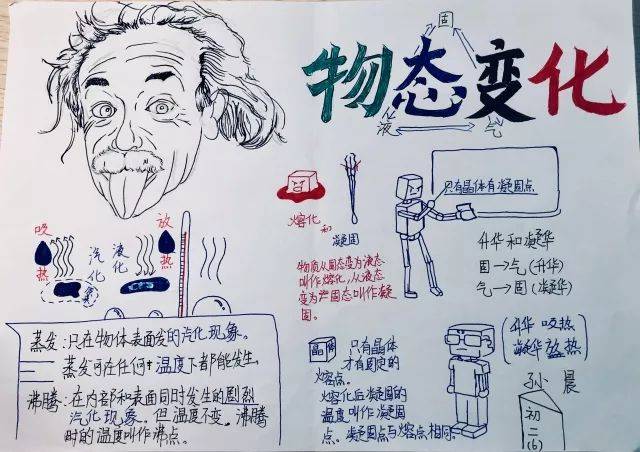 固
物态变化
液
气
只有晶体有凝固点
吸热
汽化
液化
放热
熔化
和
凝固
物质从固态变为液态
叫作熔化,从液态
变为固态叫作凝
固。
升华和凝华
固→气(升华)
气→固(凝华)
(升华 吸热
凝华 放热)
蒸发:只在物体表面发的汽化现象。
蒸发可在任何温度下都能发生。
沸腾:在内部和表面同时发生的剧烈
汽化现象。但温度不变。沸腾
时的温度叫作沸点。
晶体
只有晶体
才有固定的
熔点。
熔化后凝固的
温度叫作凝固
点。凝固点与熔点相同。
孙晨
初二(6)